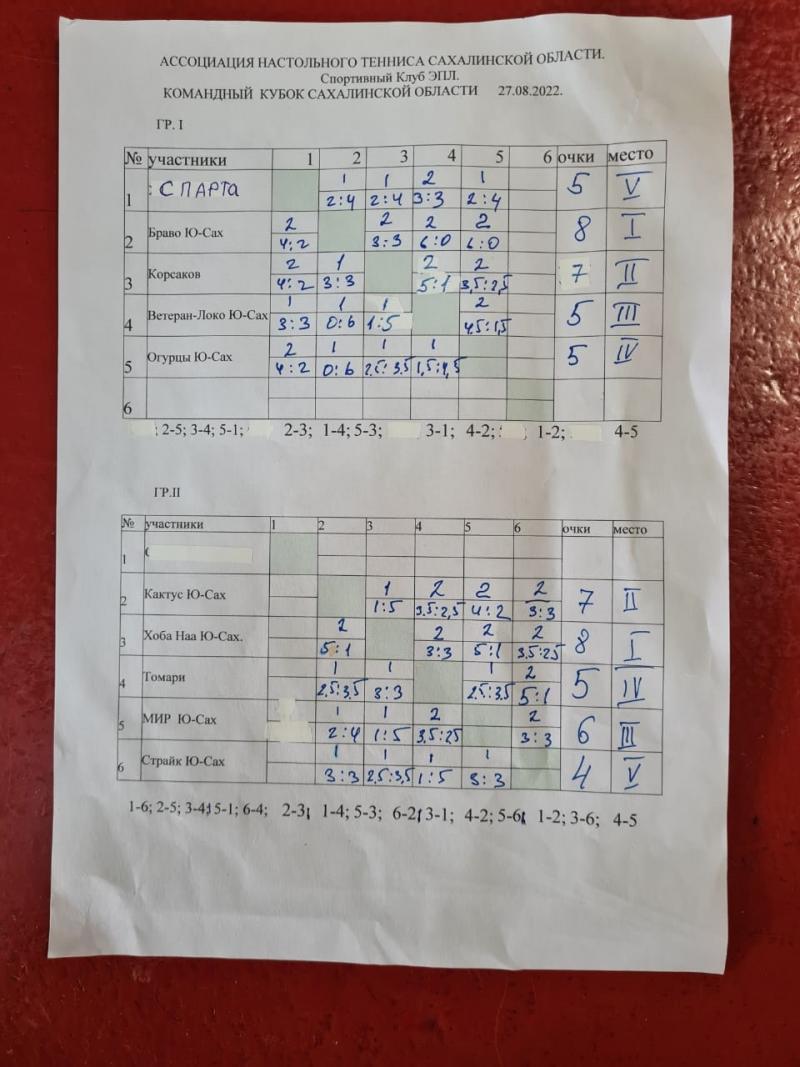 АССОЦИАЦИЯ НАСТОЛЬНОГО ТЕННИСА САХАЛИНСКОЙ ОБЛАСТИ.
Спортивный Клуб ЭПЛ.
КОМАНДНЫЙ КУБОК САХАЛИНСКОЙ ОБЛАСТИ 27.08.2022.
ГР. I
№ участники 1 2 3 4 5 6 очки место
1 СПАРТА 1 1 2 1 5 V
2:4 2:4 3:3 2:4
2 Браво Ю-Сах 2 2 2 2 8 I
4:2 3:3 6:0 6:0
3 Корсаков 2 1 2 2 7 II
4:2 3:3 5:1 3,5:2,5
4 Ветеран-Локо Ю-Сах 1 1 1 2 5 III
3:3 0:6 1:5 4,5:1,5
5 Огурцы Ю-Сах 2 1 1 1 5 IV
4:2 0:6 2,5:3,5 1,5:4,5
6
; 2-5; 3-4; 5-1; 2-3; 1-4; 5-3; 3-1; 4-2; 1-2; 4-5
ГР.II
№ участники 1 2 3 4 5 6 очки место
1
2 Кактус Ю-Сах 1 2 2 2 7 II
1:5 3,5:2,5 4:2 3:3
3 Хоба Наа Ю-Сах. 2 2 2 2 8 I
5:1 3:3 5:1 3,5:2,5
4 Томари 1 1 1 2 5 IV
2,5:3,5 3:3 2,5:3,5 5:1
5 МИР Ю-Сах 1 1 2 2 6 III
2:4 1:5 3,5:2,5 3:3
6 Страйк Ю-Сах 1 1 1 1 4 V
3:3 2,5:3,5 1:5 3:3
1-6; 2-5; 3-4; 5-1; 6-4; 2-3; 1-4; 5-3; 6-2; 3-1; 4-2; 5-6; 1-2; 3-6; 4-5